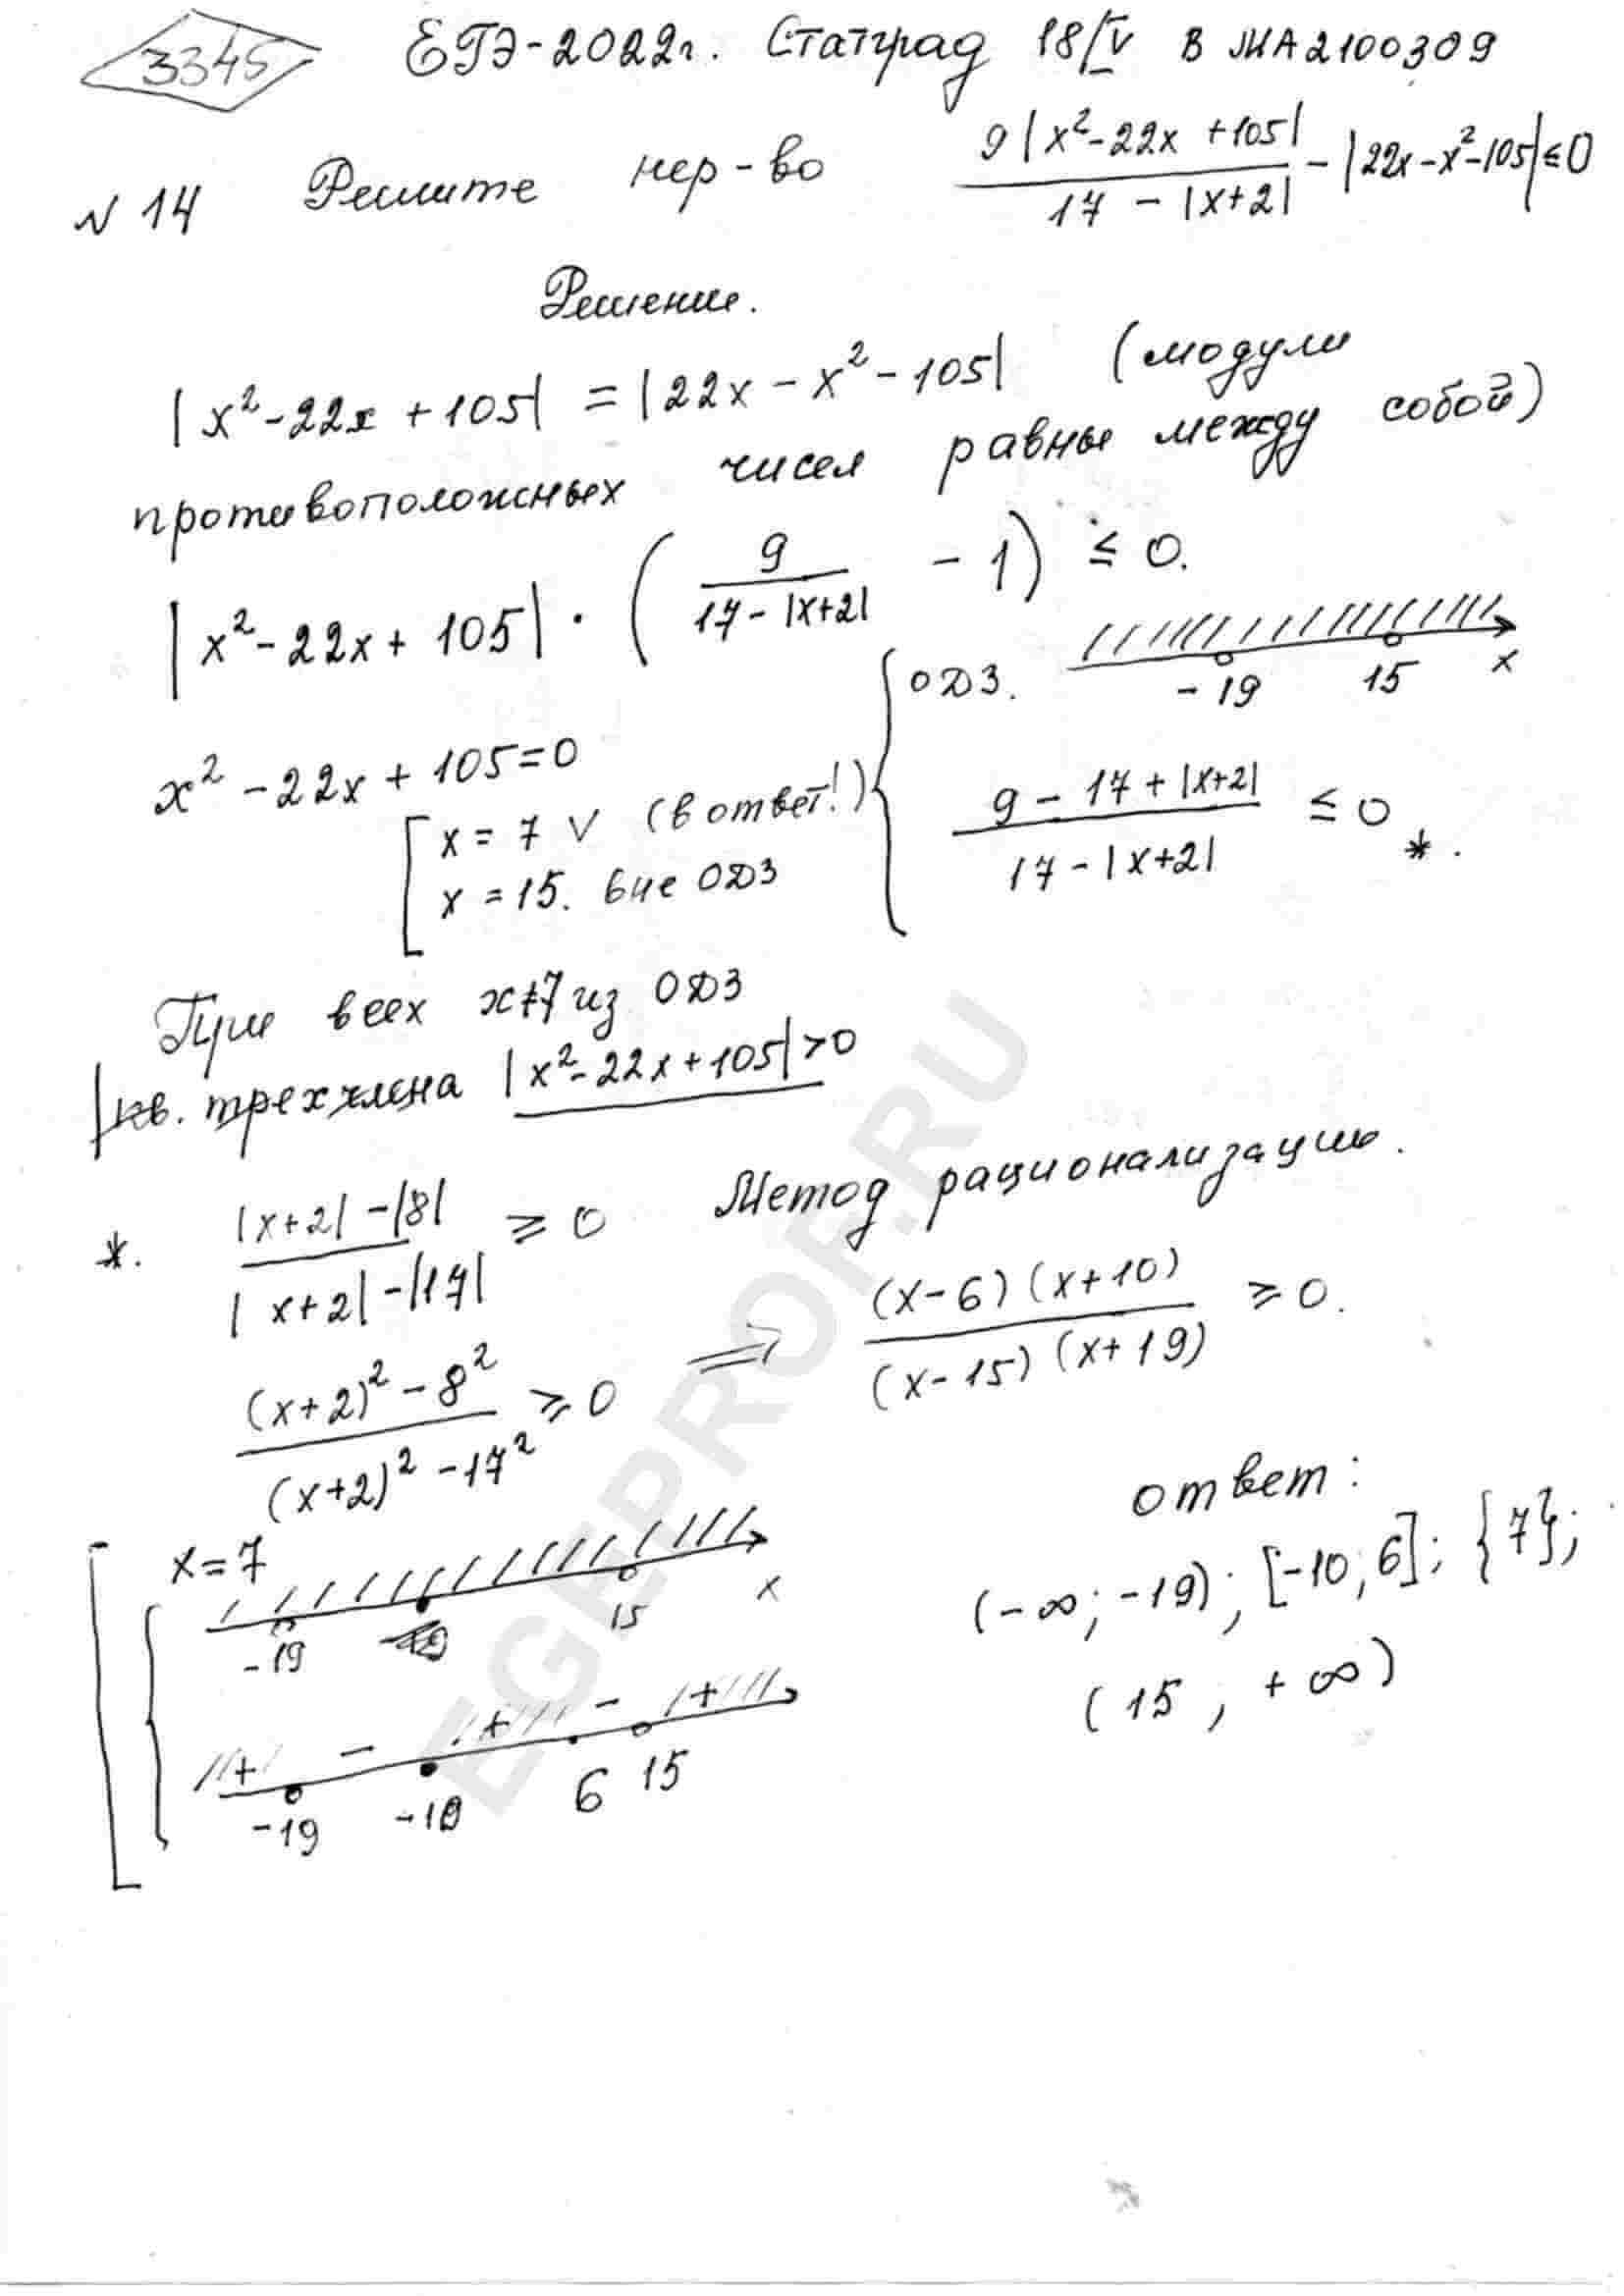 3345 ЕГЭ-2022г. Статград 18/IV В МА2100309
N 14 Решите нер-во 9|x²-22x+105| / 17-|x+2| - |22x-x²-105| ≤ 0
Решение.
|x²-22x+105| = |22x-x²-105| (модули
противоположных чисел равны между собой)
|x²-22x+105| · (9 / 17-|x+2| - 1) ≤ 0.
ОДЗ. -19 15 x
x²-22x+105=0
x = 7 V (в ответ!)
x = 15. вне ОДЗ
9-17+|x+2| / 17-|x+2| ≤ 0 *.
При всех x≠7 из ОДЗ
|кв. трехчлена |x²-22x+105|>0
*. |x+2|-|8| / |x+2|-|17| ≥ 0 Метод рационализации.
(x+2)²-8² / (x+2)²-17² ≥ 0 => (x-6)(x+10) / (x-15)(x+19) ≥ 0.
x=7
-19 15 x
+ - + - +
-19 -10 6 15
ответ:
(-∞; -19); [-10; 6]; {7};
(15, +∞)
EGEPROF.RU